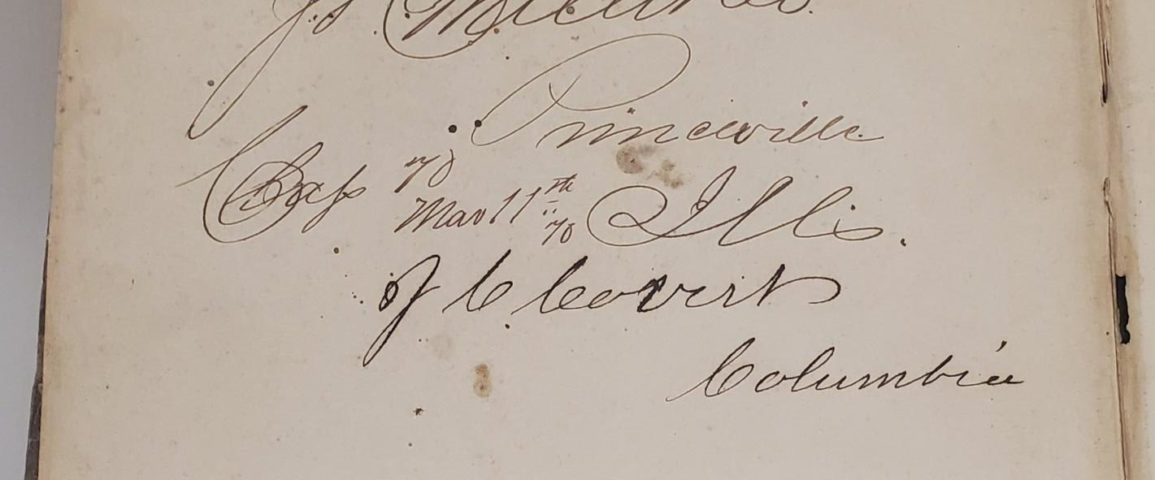 Princeville
Class 70
Mar 11th 70 Ills.
J C Covert
Columbia